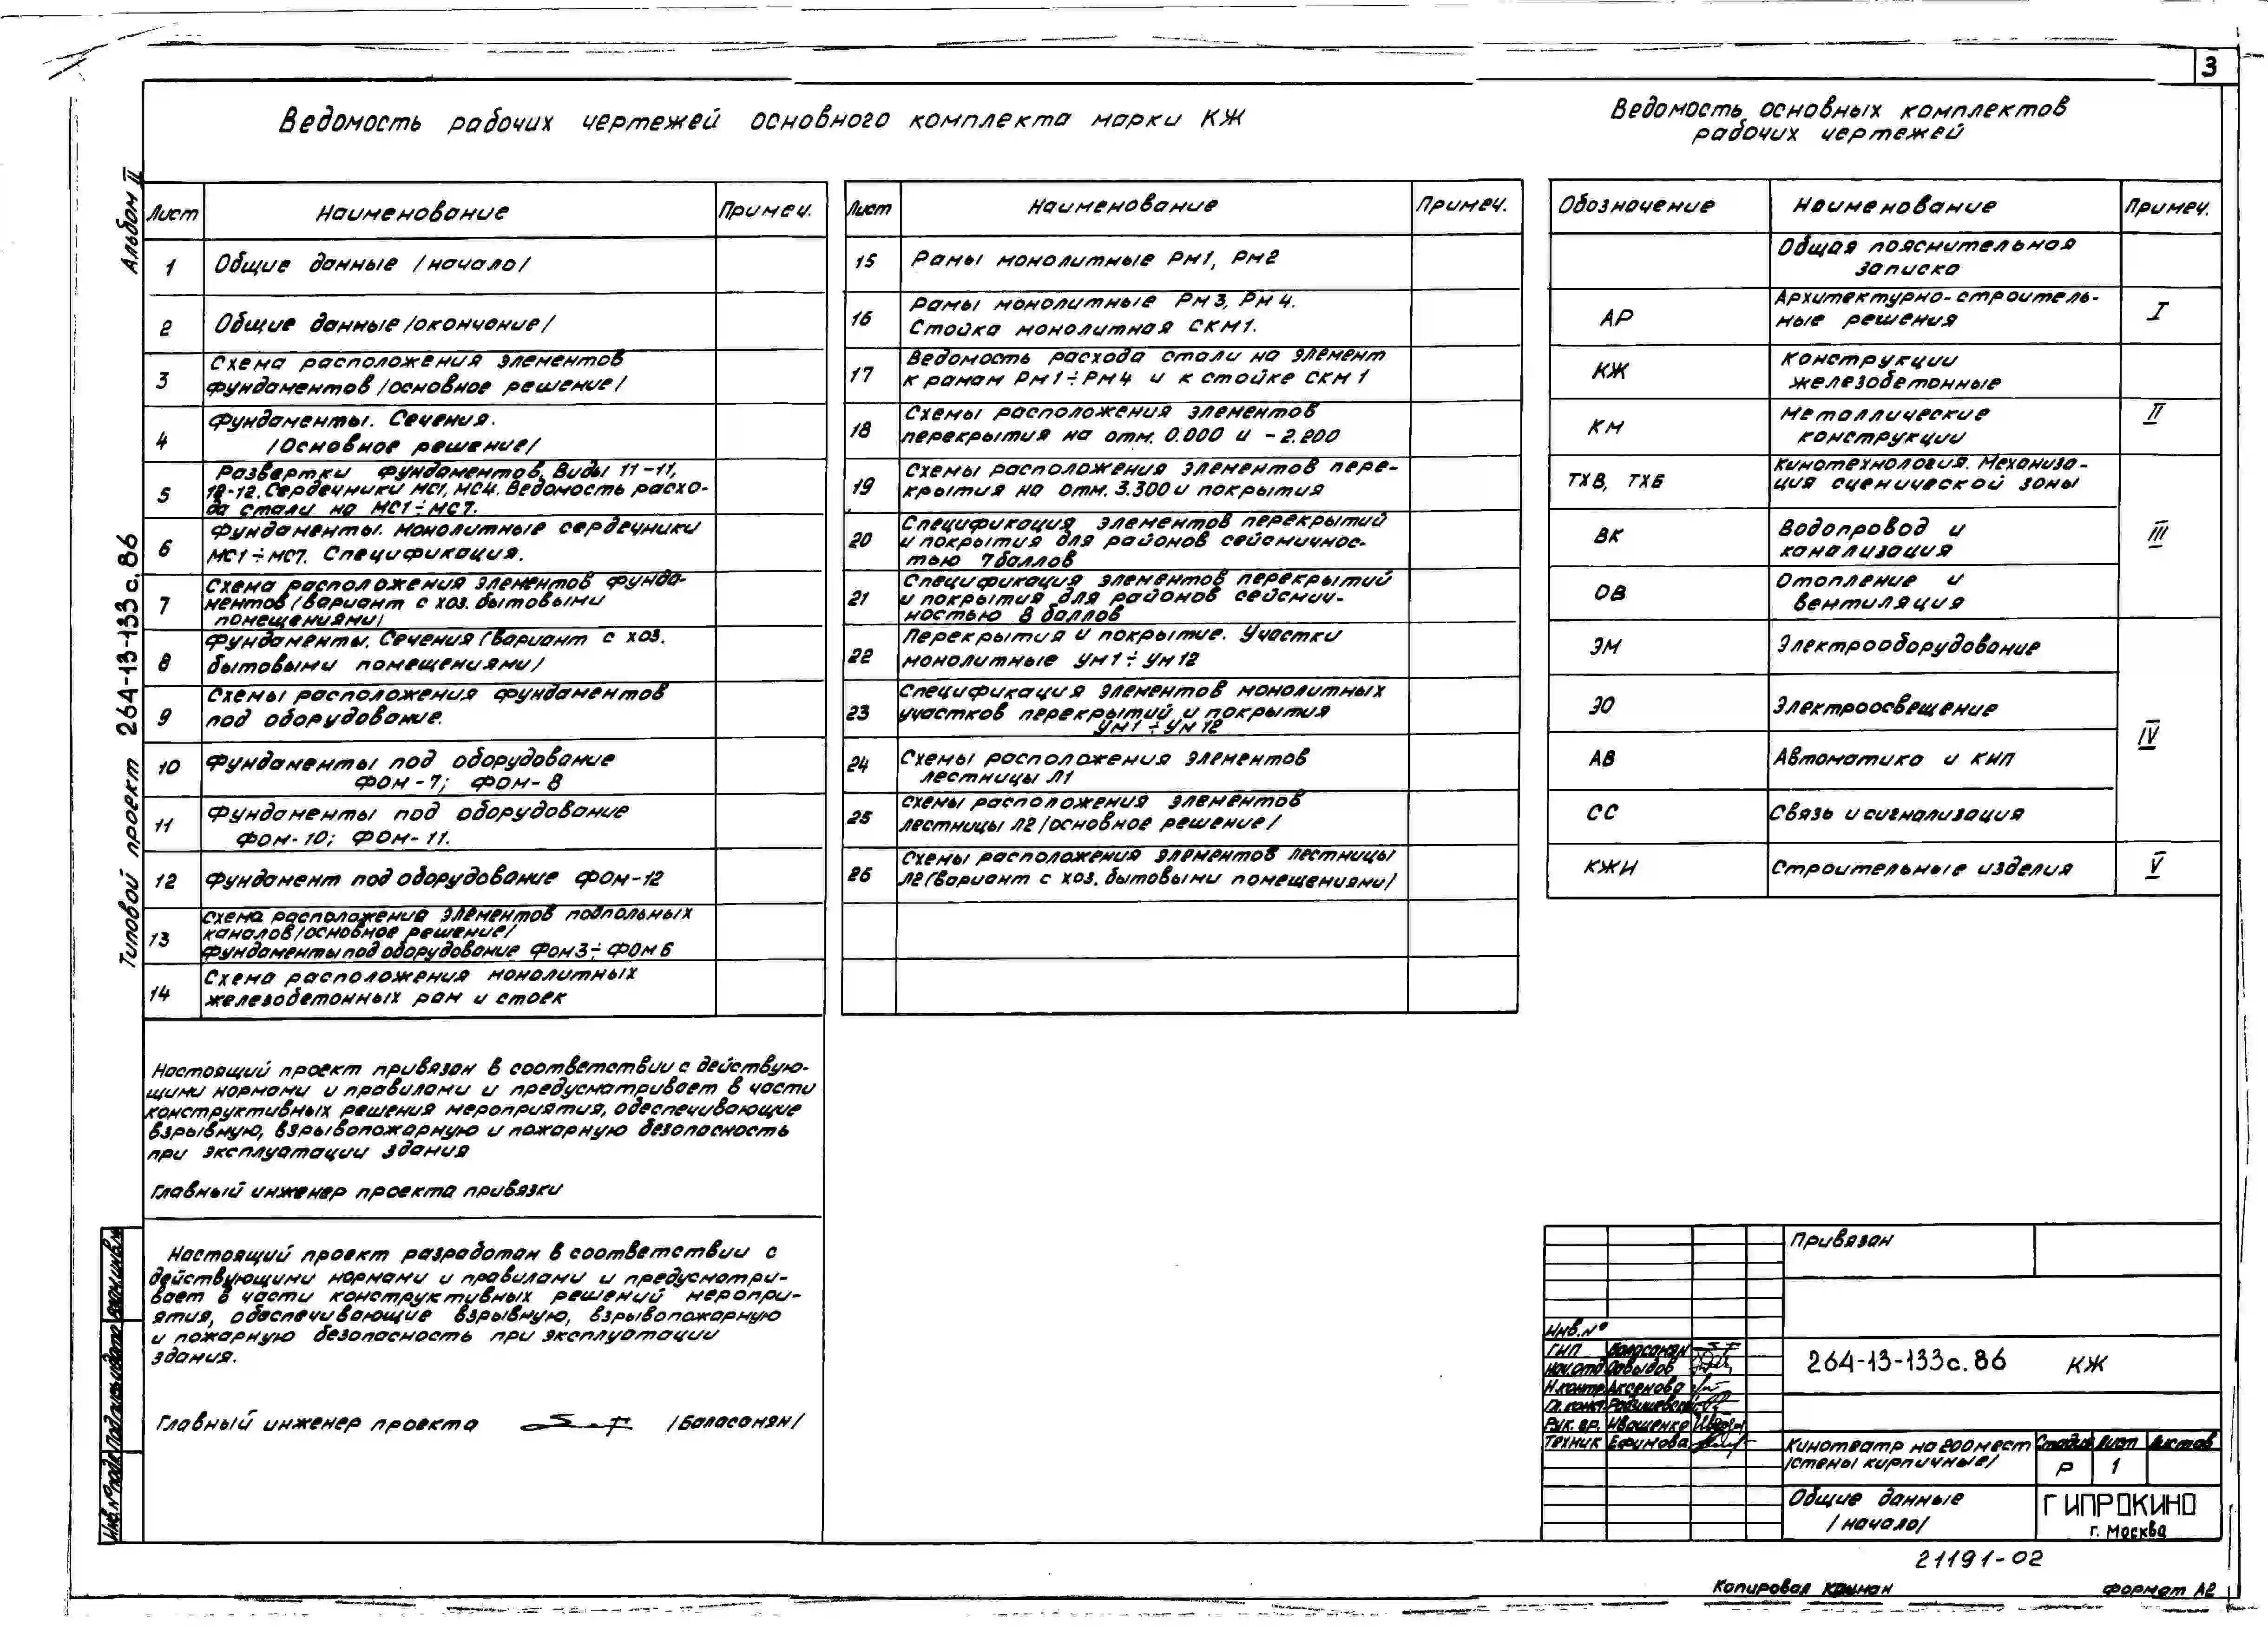 3
Альбом II
Типовой проект 264-13-133с.86
Ведомость рабочих чертежей основного комплекта марки КЖ
Лист Наименование Примеч.
1 Общие данные /начало/
2 Общие данные /окончание/
3 Схема расположения элементов
фундаментов /основное решение/
4 Фундаменты. Сечения.
/Основное решение/
5 Развертки фундаментов, Виды 11-11,
12-12. Сердечники МС1, МС4. Ведомость расхо-
да стали на МС1÷МС7.
6 Фундаменты. Монолитные сердечники
МС1÷МС7. Спецификация.
7 Схема расположения элементов фунда-
ментов /вариант с хоз. бытовыми
помещениями/
8 Фундаменты. Сечения /вариант с хоз.
бытовыми помещениями/
9 Схемы расположения фундаментов
под оборудование.
10 Фундаменты под оборудование
ФОМ-7; ФОМ-8
11 Фундаменты под оборудование
ФОМ-10; ФОМ-11.
12 Фундамент под оборудование ФОМ-12
13 Схема расположения элементов подпольных
каналов /основное решение/
Фундаменты под оборудование ФОМ3÷ФОМ6
14 Схема расположения монолитных
железобетонных рам и стоек
Лист Наименование Примеч.
15 Рамы монолитные РМ1, РМ2
16 Рамы монолитные РМ3, РМ4.
Стойка монолитная СКМ1.
17 Ведомость расхода стали на элемент
к рамам РМ1÷РМ4 и к стойке СКМ1
18 Схемы расположения элементов
перекрытия на отм. 0.000 и -2.200
19 Схемы расположения элементов пере-
крытия на отм. 3.300 и покрытия
20 Спецификация элементов перекрытий
и покрытия для районов сейсмичнос-
тью 7 баллов
21 Спецификация элементов перекрытий
и покрытия для районов сейсмич-
ностью 8 баллов
22 Перекрытия и покрытие. Участки
монолитные УМ1÷УМ12
23 Спецификация элементов монолитных
участков перекрытий и покрытия
УМ1÷УМ12
24 Схемы расположения элементов
лестницы Л1
25 Схемы расположения элементов
лестницы Л2 /основное решение/
26 Схемы расположения элементов лестницы
Л2 /вариант с хоз. бытовыми помещениями/
Ведомость основных комплектов
рабочих чертежей
Обозначение Наименование Примеч.
Общая пояснительная
записка
АР Архитектурно-строитель-
ные решения I
КЖ Конструкции
железобетонные
КМ Металлические II
конструкции
ТХВ, ТХБ Кинотехнология. Механиза-
ция сценической зоны
ВК Водопровод и III
канализация
ОВ Отопление и
вентиляция
ЭМ Электрооборудование
ЭО Электроосвещение
IV
АВ Автоматика и КИП
СС Связь и сигнализация
КЖИ Строительные изделия V
Настоящий проект привязан в соответствии с действую-
щими нормами и правилами и предусматривает в части
конструктивных решения мероприятия, обеспечивающие
взрывную, взрывопожарную и пожарную безопасность
при эксплуатации здания
Главный инженер проекта привязки
Настоящий проект разработан в соответствии с
действующими нормами и правилами и предусматри-
вает в части конструктивных решений меропри-
ятия, обеспечивающие взрывную, взрывопожарную
и пожарную безопасность при эксплуатации
здания.
Главный инженер проекта /Баласанян/
Инв.№ подл. Подпись и дата Взам.инв.№
Привязан
Инв.№
ГИП Баласанян
Нач.отд Давыдов
Н.контр. Аксенова
Гл.конст.
Рук.гр. Иващенко
Техник Ефимова
264-13-133с.86 КЖ
Кинотеатр на 200 мест
/стены кирпичные/
Стадия Лист Листов
Р 1
Общие данные
/начало/
ГИПРОКИНО
г. Москва
21191-02
Копировал
Формат А2